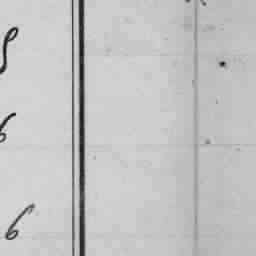 8
6
6